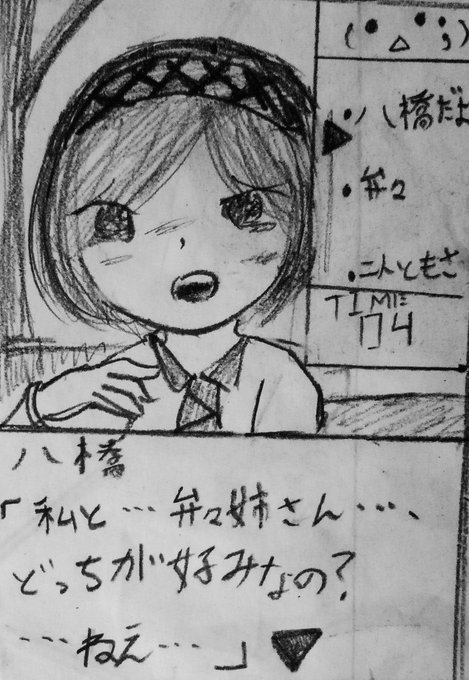 (•△•;)
・八橋だよ
・弁々
・二人ともさ
TIME
04
八橋
「私と…弁々姉さん…、
どっちが好みなの?
…ねえ…」▼